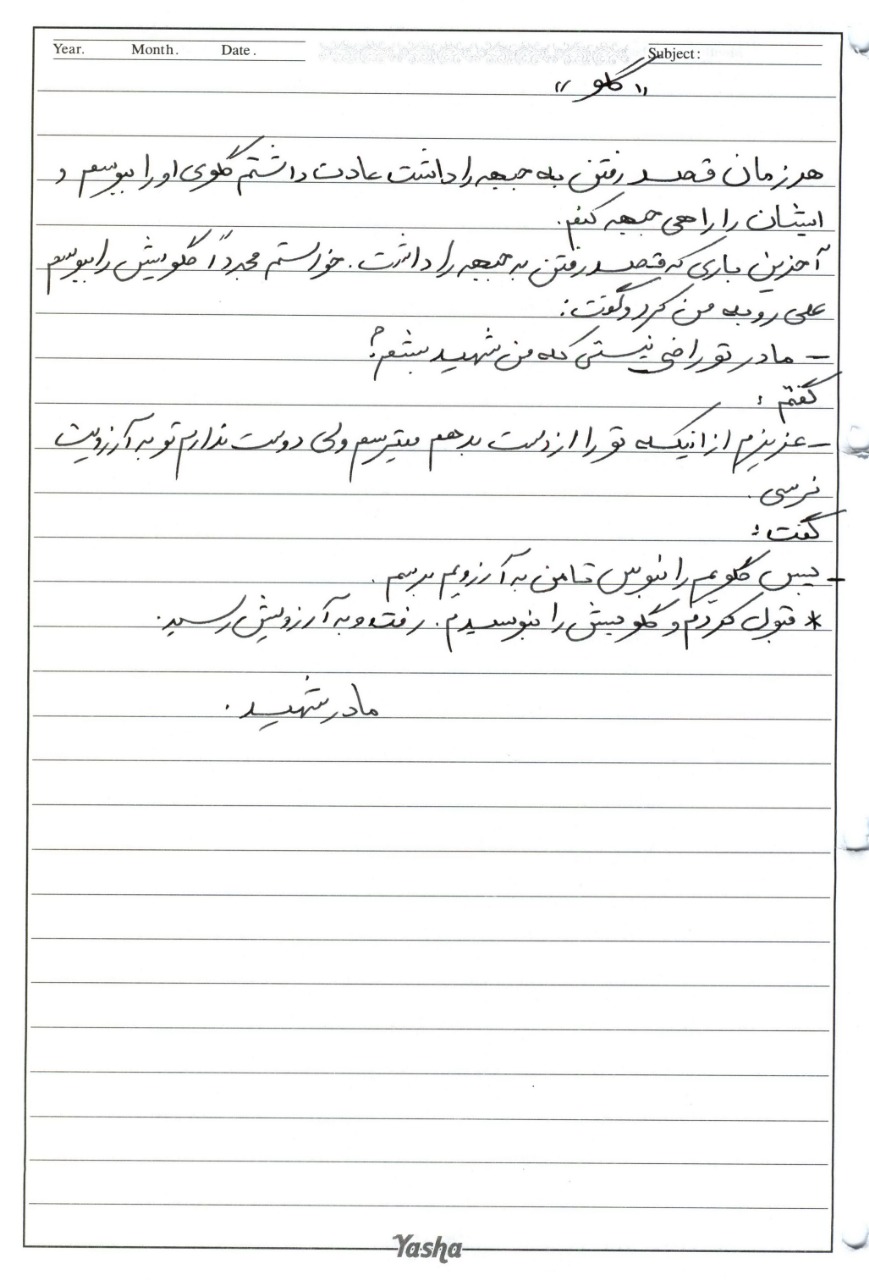 Year. Month. Date. Subject:
«گلو»
هر زمان قصد رفتن به جبهه را داشت عادت داشتم گلوی او را ببوسم و
ایشان را راهی جبهه کنم.
آخرین باری که قصد رفتن به جبهه را داشت. خواستم مجدداً گلویش را ببوسم
علی رو به من کرد و گفت:
- مادر تو راضی نیستی که من شهید بشم؟
گفتم:
- عزیزم از اینکه تو را از دست بدهم میترسم ولی دوست ندارم تو به آرزویت
نرسی.
گفت:
- پس گلویم را نبوس تا من به آرزویم برسم.
* قبول کردم و گلویش را نبوسیدم. رفت و به آرزویش رسید.
مادر شهید.
Yasha